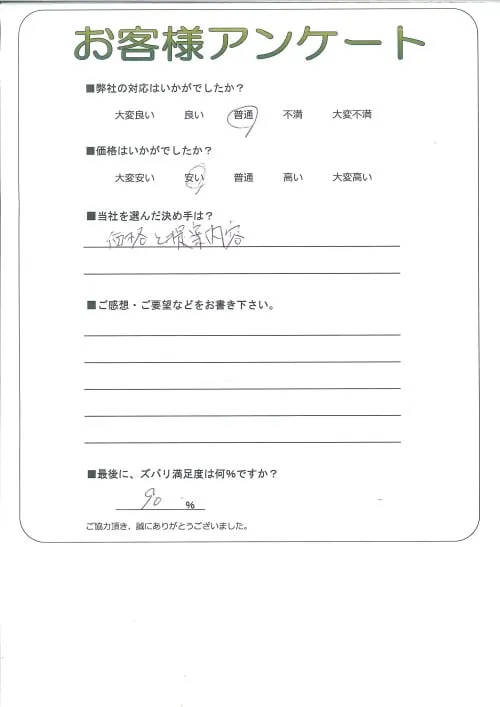 お客様アンケート
■弊社の対応はいかがでしたか？
大変良い 良い 普通 不満 大変不満
■価格はいかがでしたか？
大変安い 安い 普通 高い 大変高い
■当社を選んだ決め手は？
価格と提案内容
■ご感想・ご要望などをお書き下さい。
■最後に、ズバリ満足度は何％ですか？
90 ％
ご協力頂き、誠にありがとうございました。